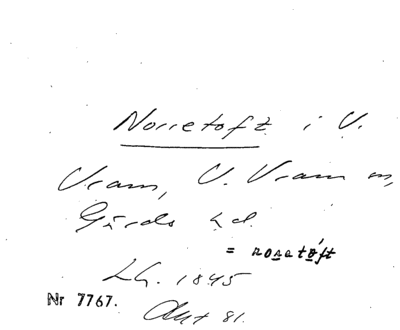 Norretoft i V.
Vram, V. Vram sn,
Gärds hd.
= noretóft
Lh. 1845
Nr 7767.
Akt 81.